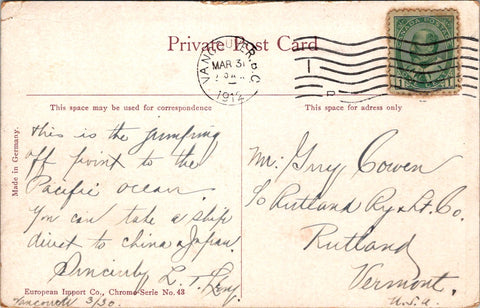 Private Post Card
VANCOUVER, B.C.
MAR 31
1912
CANADA POSTAGE
1
This space may be used for correspondence
This space for adress only
Made in Germany.
this is the jumping
off point to the
Pacific ocean.
You can take a ship
direct to china & Japan
Sincerely L. T.
Mr. Guy Cowen
c/o Rutland Ry & Lt. Co.
Rutland
Vermont.
U.S.A.
European Import Co., Chromo-Serie No. 43
Vancouver 3/30.